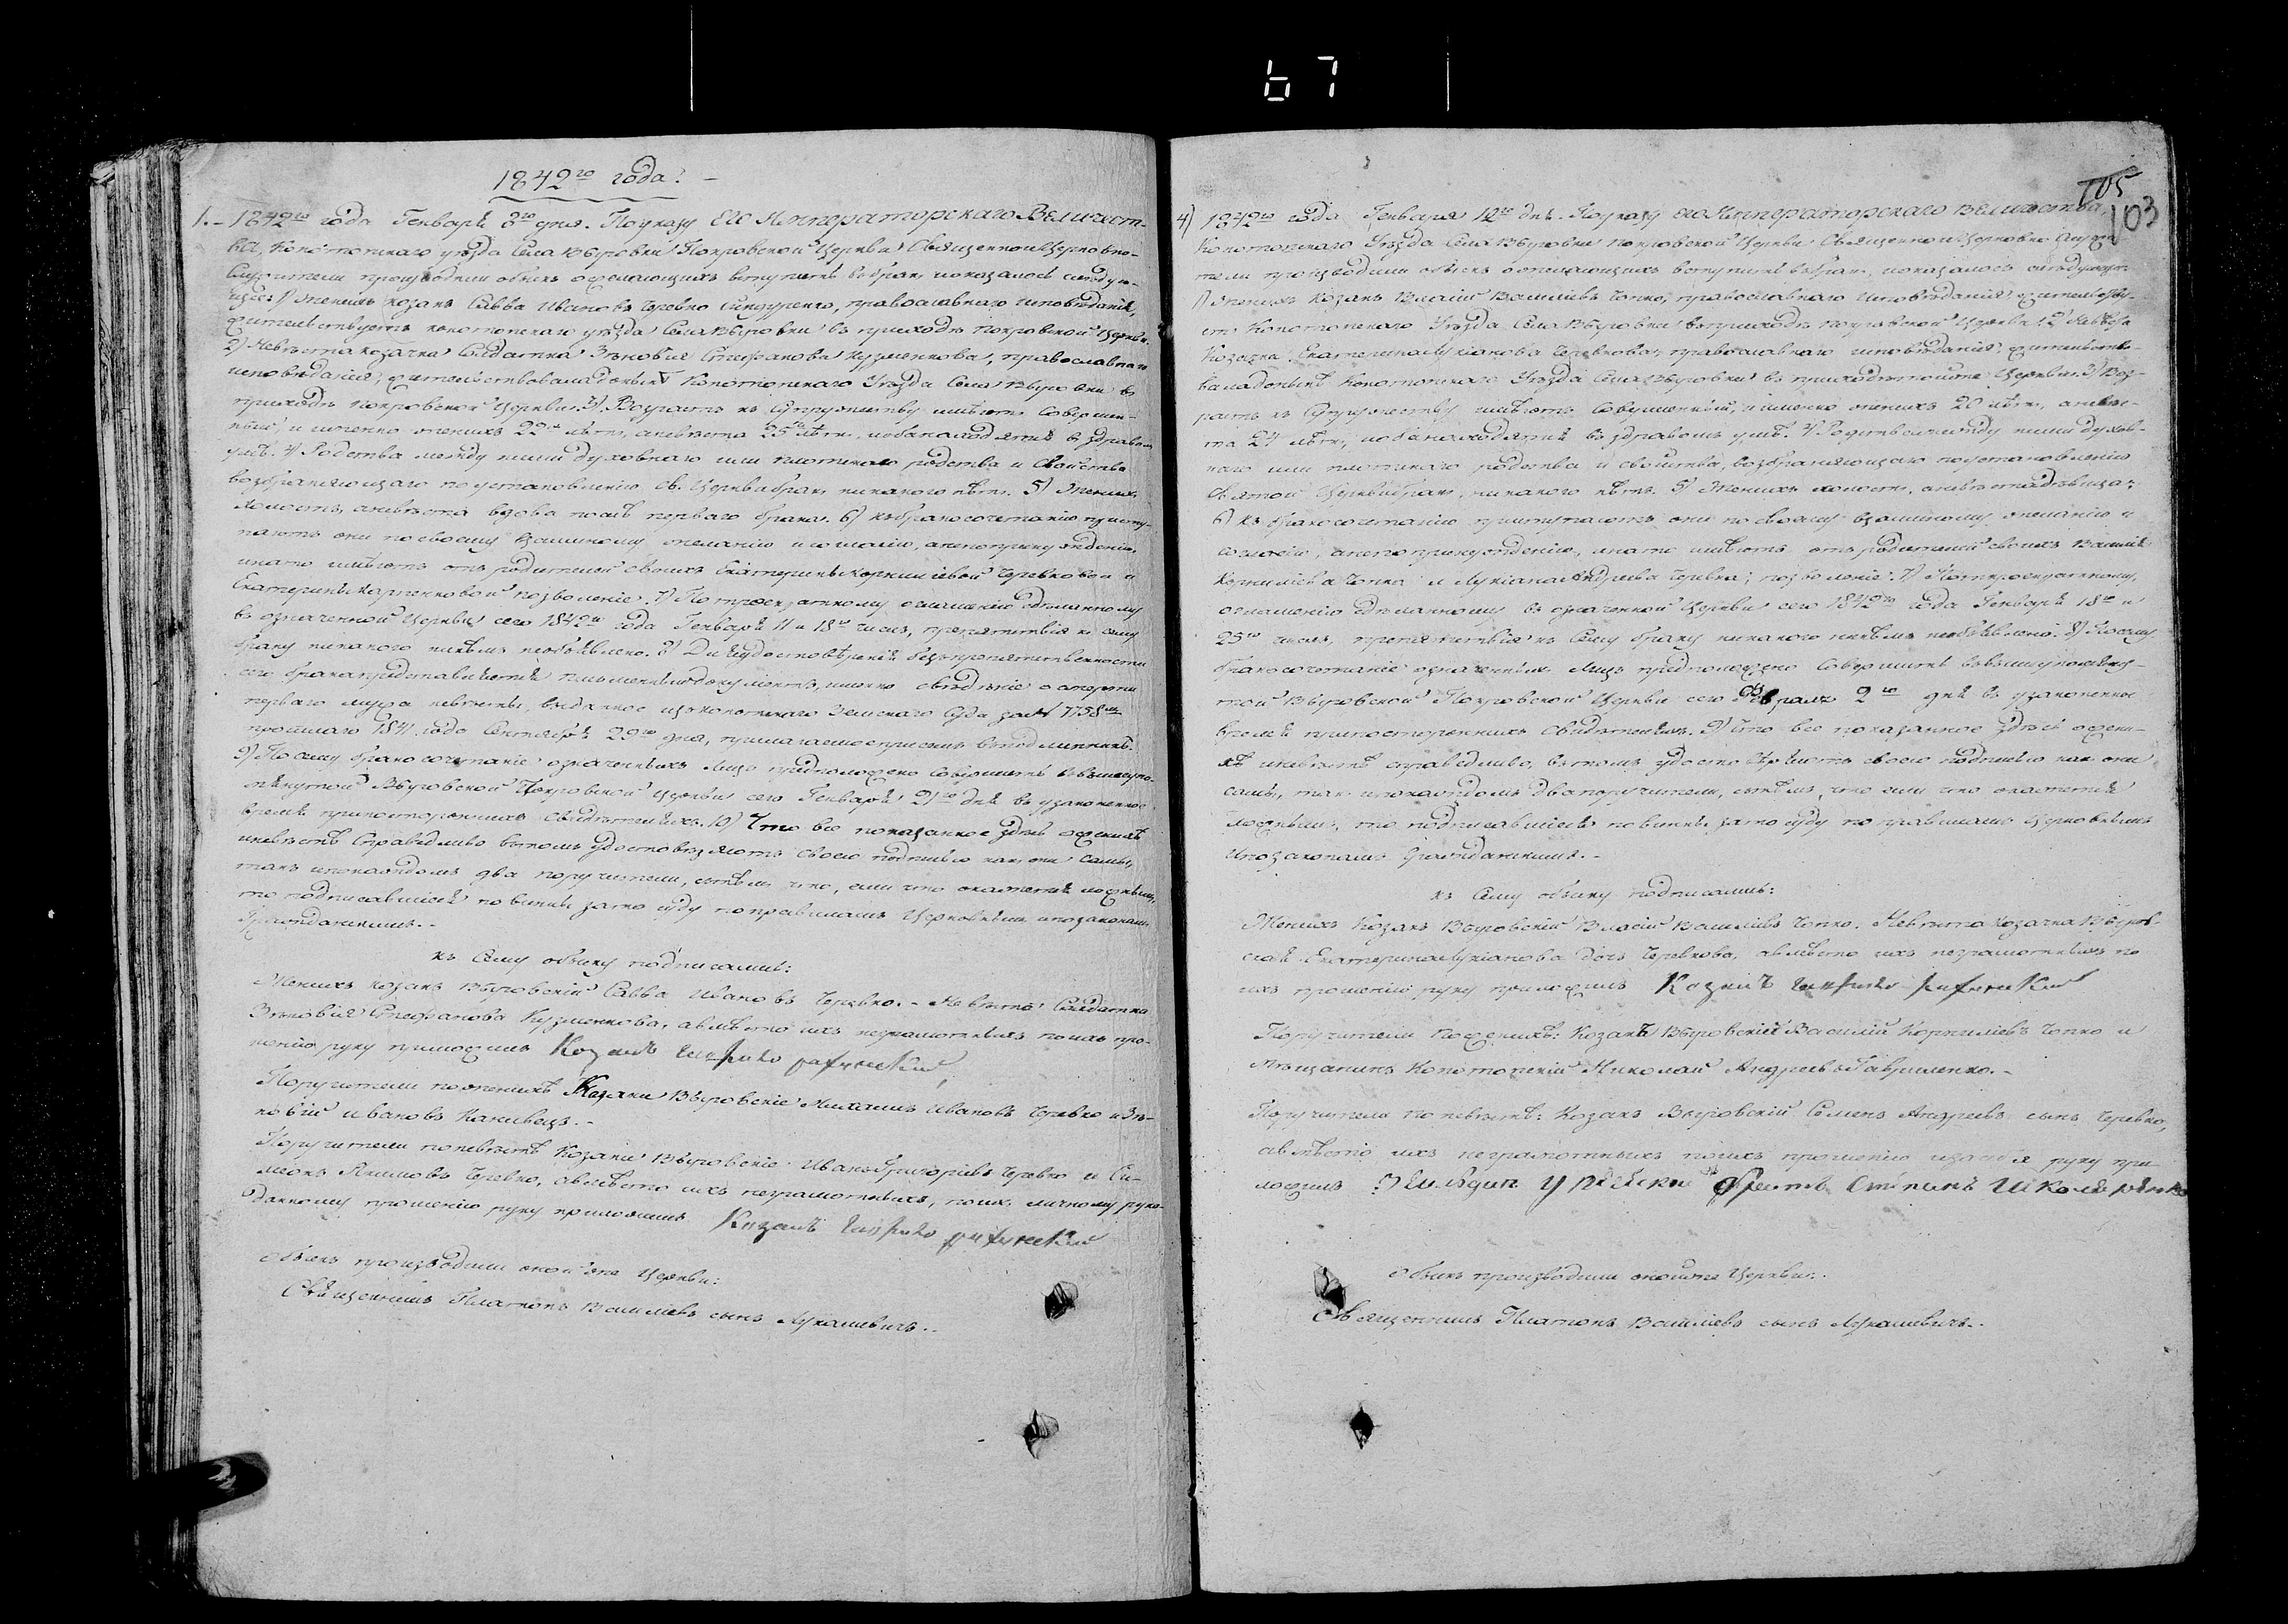 67
1842го года:
1. 1842го года Генваря 8го дня. По указу Его Императорскаго Величест-
ва, Конотопскаго уезда села Вьуровки Покровской Церкви Священно и Церковно-
Служители производили обыск о желающих вступить в брак, и оказалось следую-
щее: 1) Жених козак Савва Иванов Черевко православнаго исповеданія,
жительствует конотопскаго уезда села Вьуровки в приходе покровской Церкви.
2) Невеста козачка Солдатка Зеновія Стефанова Кузменкова, православнаго
исповеданія, жительствовала доныне Конотопскаго Уезда Села Вьуровки в
приходе покровской Церкви. 3) Возраст к супружеству имеют совершен-
ный, и именно жених 22 лет, а невеста 25 лет, и оба находятся в здравом
уме. 4) Родства между ними духовнаго или плотскаго родства и свойства
возбраняющаго по установлению св. Церкви брак никакого нет. 5) Жених
холост, а невеста вдова после перваго брака. 6) К бракосочетанию присту-
пают они по своему взаимному желанию и согласию, а не по принуждению,
и на то имеют от родителей своих Екатерины Корнилиевой Черевковой и
Екатерины позволение. 7) По троекратному оглашению сделанному
в означенной Церкви сего 1842го года Генваря 11 и 18го числ, препятствия к сему
браку никакого никем не объявлено. 8) Для удостоверения безпрепятственности
сего брака представляется письменный документ, именно сведение о смерти
перваго мужа невесты, выданное из конотопскаго Земскаго Суда за № 7758м
прошлаго 1841 года Сентября 29го дня, прилагаемое при сем в подлиннике.
9) По сему бракосочетание означенных лиц предположено совершить в вышеупо-
мянутой Вьуровской Покровской Церкви сего Генваря 21го дня в узаконенное
время при посторонних свидетелях. 10) Что все показанное здесь о женихе
и невесте справедливо в том удостоверяют своею подписью как они самы,
так и по каждом два поручители, с тем что, если что окажется ложным,
то подписавшиеся повинны за то суду по правилам Церковным и по законам
Гражданским.
К сему обыску подписались:
Жених козак Вьуровский Савва Иванов Черевко. - Невеста Солдатка
Зеновія Стефанова Кузменкова, а вместо их неграмотных по их про-
шению руку приложил Козак
Поручители по жениху Козаки Вьуровские Михаил Иванов Черевко и Зе-
новий Иванов Канивец.
Поручители по невесте Козаки Вьуровские Иван Григориев Черевко и Си-
меон Якимов Черевко, а вместо их неграмотных, по их личному руко-
данному прошению руку приложил Козак
Обыск производили оной же Церкви:
Священник Платон Василиев сын Лукашевич.
105
103
4) 1842го года Генваря 12го дня. По указу Его Императорскаго Величества,
Конотопскаго Уезда Села Вьуровки покровской Церкви Священно и Церковно Служи-
тели производили обыск о желающих вступить в брак, и оказалось следующее:
1) Жених Козак Власий Василиев Чопко, православнаго исповедания, жительству-
ет Конотопскаго Уезда Села Вьуровки в приходе покровской Церкви. 2) Невеста
Козачка Екатерина Лукианова Черевкова, православнаго исповедания, жительство-
вала доныне Конотопскаго Уезда Села Вьуровки в приходе той же Церкви. 3) Воз-
раст к супружеству имеют совершенный, и именно жених 20 лет, а невес-
та 24 лет, и оба находятся в здравом уме. 4) Родства между ними духов-
наго или плотскаго родства и свойства, возбраняющаго по установлению
Святой Церкви брак, никакого нет. 5) Жених холост, а невеста девица;
6) К бракосочетанию приступают они по своему взаимному желанию и
согласию, а не по принуждению, и на то имеют от родителей своих Василия
Корнилиева Чопка и Лукиана Андреева Черевка, позволение. 7) По троекратному,
оглашению сделанному в означенной Церкви сего 1842го года Генваря 18го и
25го числ, препятствия к сему браку никакого никем не объявлено. 8) По сему
бракосочетание означенных лиц предположено совершить в вышеупомяну-
той Вьуровской Покровской Церкви сего Февраля 2го дня в узаконенное
время при посторонних свидетелях. 9) Что все показанное здесь о жени-
хе и невесте справедливо, в том удостоверяют своею подписью как они
самы, так и по каждом два поручители, с тем, что если что окажется
ложным, то подписавшиеся повинны за то суду по правилам Церковным
и по законам Гражданским.
К сему обыску подписались:
Жених Козак Вьуровский Власий Василиев Чопко. Невеста Козачка Вьуров-
ская Екатерина Лукианова дочь Черевкова, а вместо их неграмотных по
их прошению руку приложил Козак
Поручители по жениху: Козак Вьуровский Василий Корнилиев Чопко и
Мещанин Конотопский Николай Андреев Гавриленко.
Поручители по невесте: Козак Вьуровский Семен Андреев сын Черевко,
а вместо их неграмотных по их прошению и за себя руку при-
ложил Степан
Обыск производили оной же Церкви:
Священник Платон Василиев сын Лукашевич.